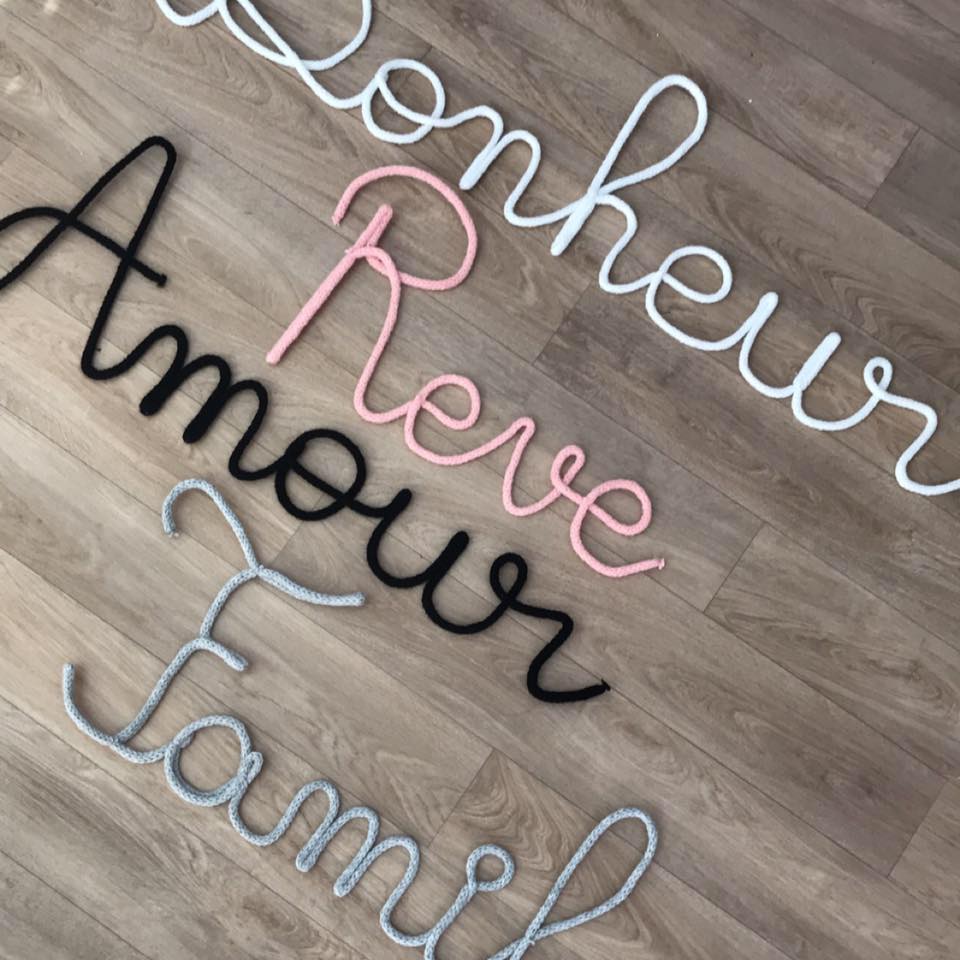 Bonheur
Reve
Amour
Famil